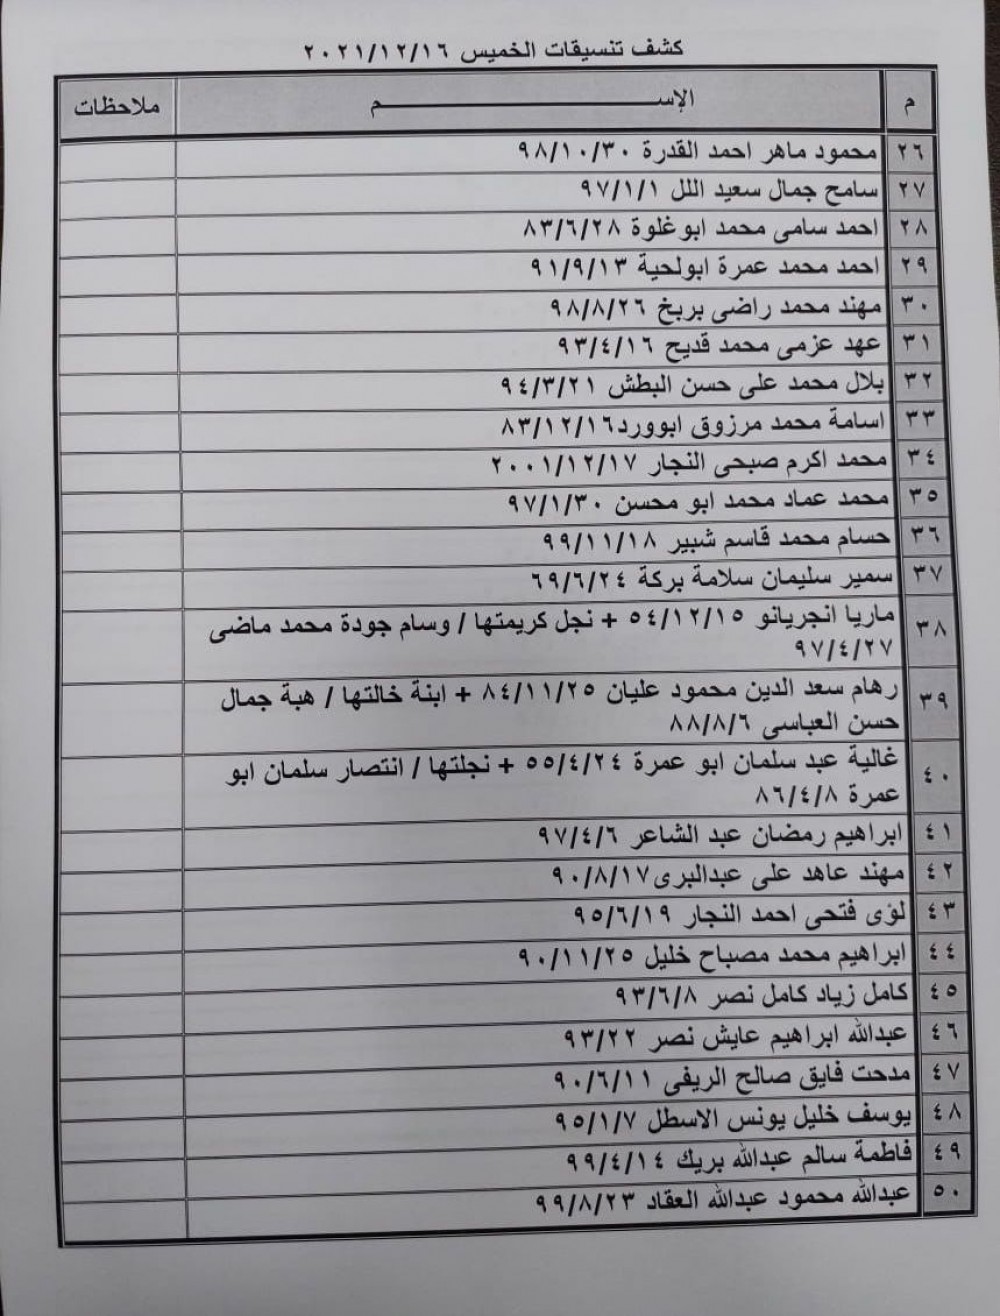 كشف تنسيقات الخميس ٢٠٢١/١٢/١٦
م الإســـــــــم ملاحظات
٢٦ محمود ماهر احمد القدرة ٩٨/١٠/٣٠
٢٧ سامح جمال سعيد اللل ٩٧/١/١
٢٨ احمد سامى محمد ابوغلوة ٨٣/٦/٢٨
٢٩ احمد محمد عمرة ابولحية ٩١/٩/١٣
٣٠ مهند محمد راضى بربخ ٩٨/٨/٢٦
٣١ عهد عزمى محمد قديح ٩٣/٤/١٦
٣٢ بلال محمد على حسن البطش ٩٤/٣/٢١
٣٣ اسامة محمد مرزوق ابوورد٨٣/١٢/١٦
٣٤ محمد اكرم صبحى النجار ٢٠٠١/١٢/١٧
٣٥ محمد عماد محمد ابو محسن ٩٧/١/٣٠
٣٦ حسام محمد قاسم شبير ٩٩/١١/١٨
٣٧ سمير سليمان سلامة بركة ٦٩/٦/٢٤
٣٨ ماريا انجريانو ٥٤/١٢/١٥ + نجل كريمتها / وسام جودة محمد ماضى
٩٧/٤/٢٧
٣٩ رهام سعد الدين محمود عليان ٨٤/١١/٢٥ + ابنة خالتها / هبة جمال
حسن العباسى ٨٨/٨/٦
٤٠ غالية عبد سلمان ابو عمرة ٥٥/٤/٢٤ + نجلتها / انتصار سلمان ابو
عمرة ٨٦/٤/٨
٤١ ابراهيم رمضان عبد الشاعر ٩٧/٤/٦
٤٢ مهند عاهد على عبدالبرى٩٠/٨/١٧
٤٣ لؤى فتحى احمد النجار ٩٥/٦/١٩
٤٤ ابراهيم محمد مصباح خليل ٩٠/١١/٢٥
٤٥ كامل زياد كامل نصر ٩٣/٦/٨
٤٦ عبدالله ابراهيم عايش نصر ٩٣/٢٢
٤٧ مدحت فايق صالح الريفى ٩٠/٦/١١
٤٨ يوسف خليل يونس الاسطل ٩٥/١/٧
٤٩ فاطمة سالم عبدالله بريك ٩٩/٤/١٤
٥٠ عبدالله محمود عبدالله العقاد ٩٩/٨/٢٣